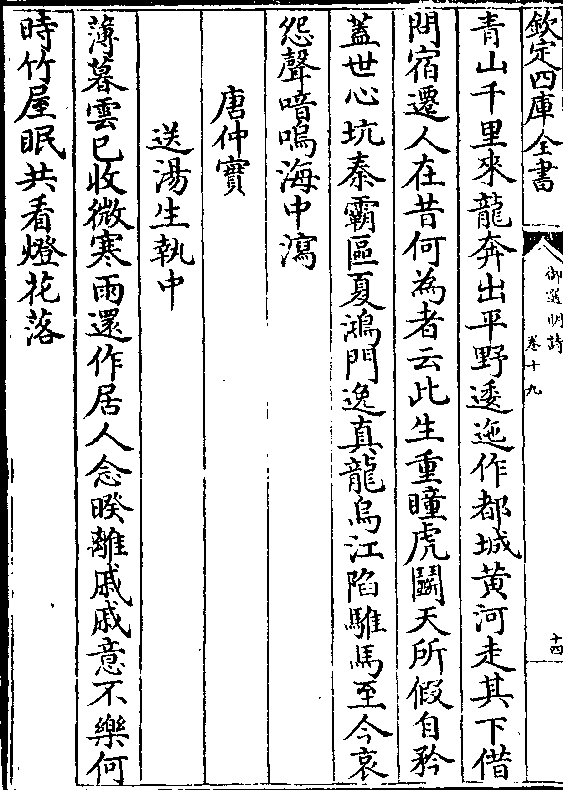 欽定四庫全書
御選明詩
卷十九
十四
青山千里來龍奔出平野逶迤作都城黃河走其下借
問宿遷人在昔何為者云此生重瞳虎鬬天所假自矜
蓋世心坑秦霸區夏鴻門逸真龍烏江陷騅馬至今哀
怨聲喑嗚海中瀉
唐仲實
送湯生執中
薄暮雲已收微寒雨還作居人念暌離戚戚意不樂何
時竹屋眠共看燈花落